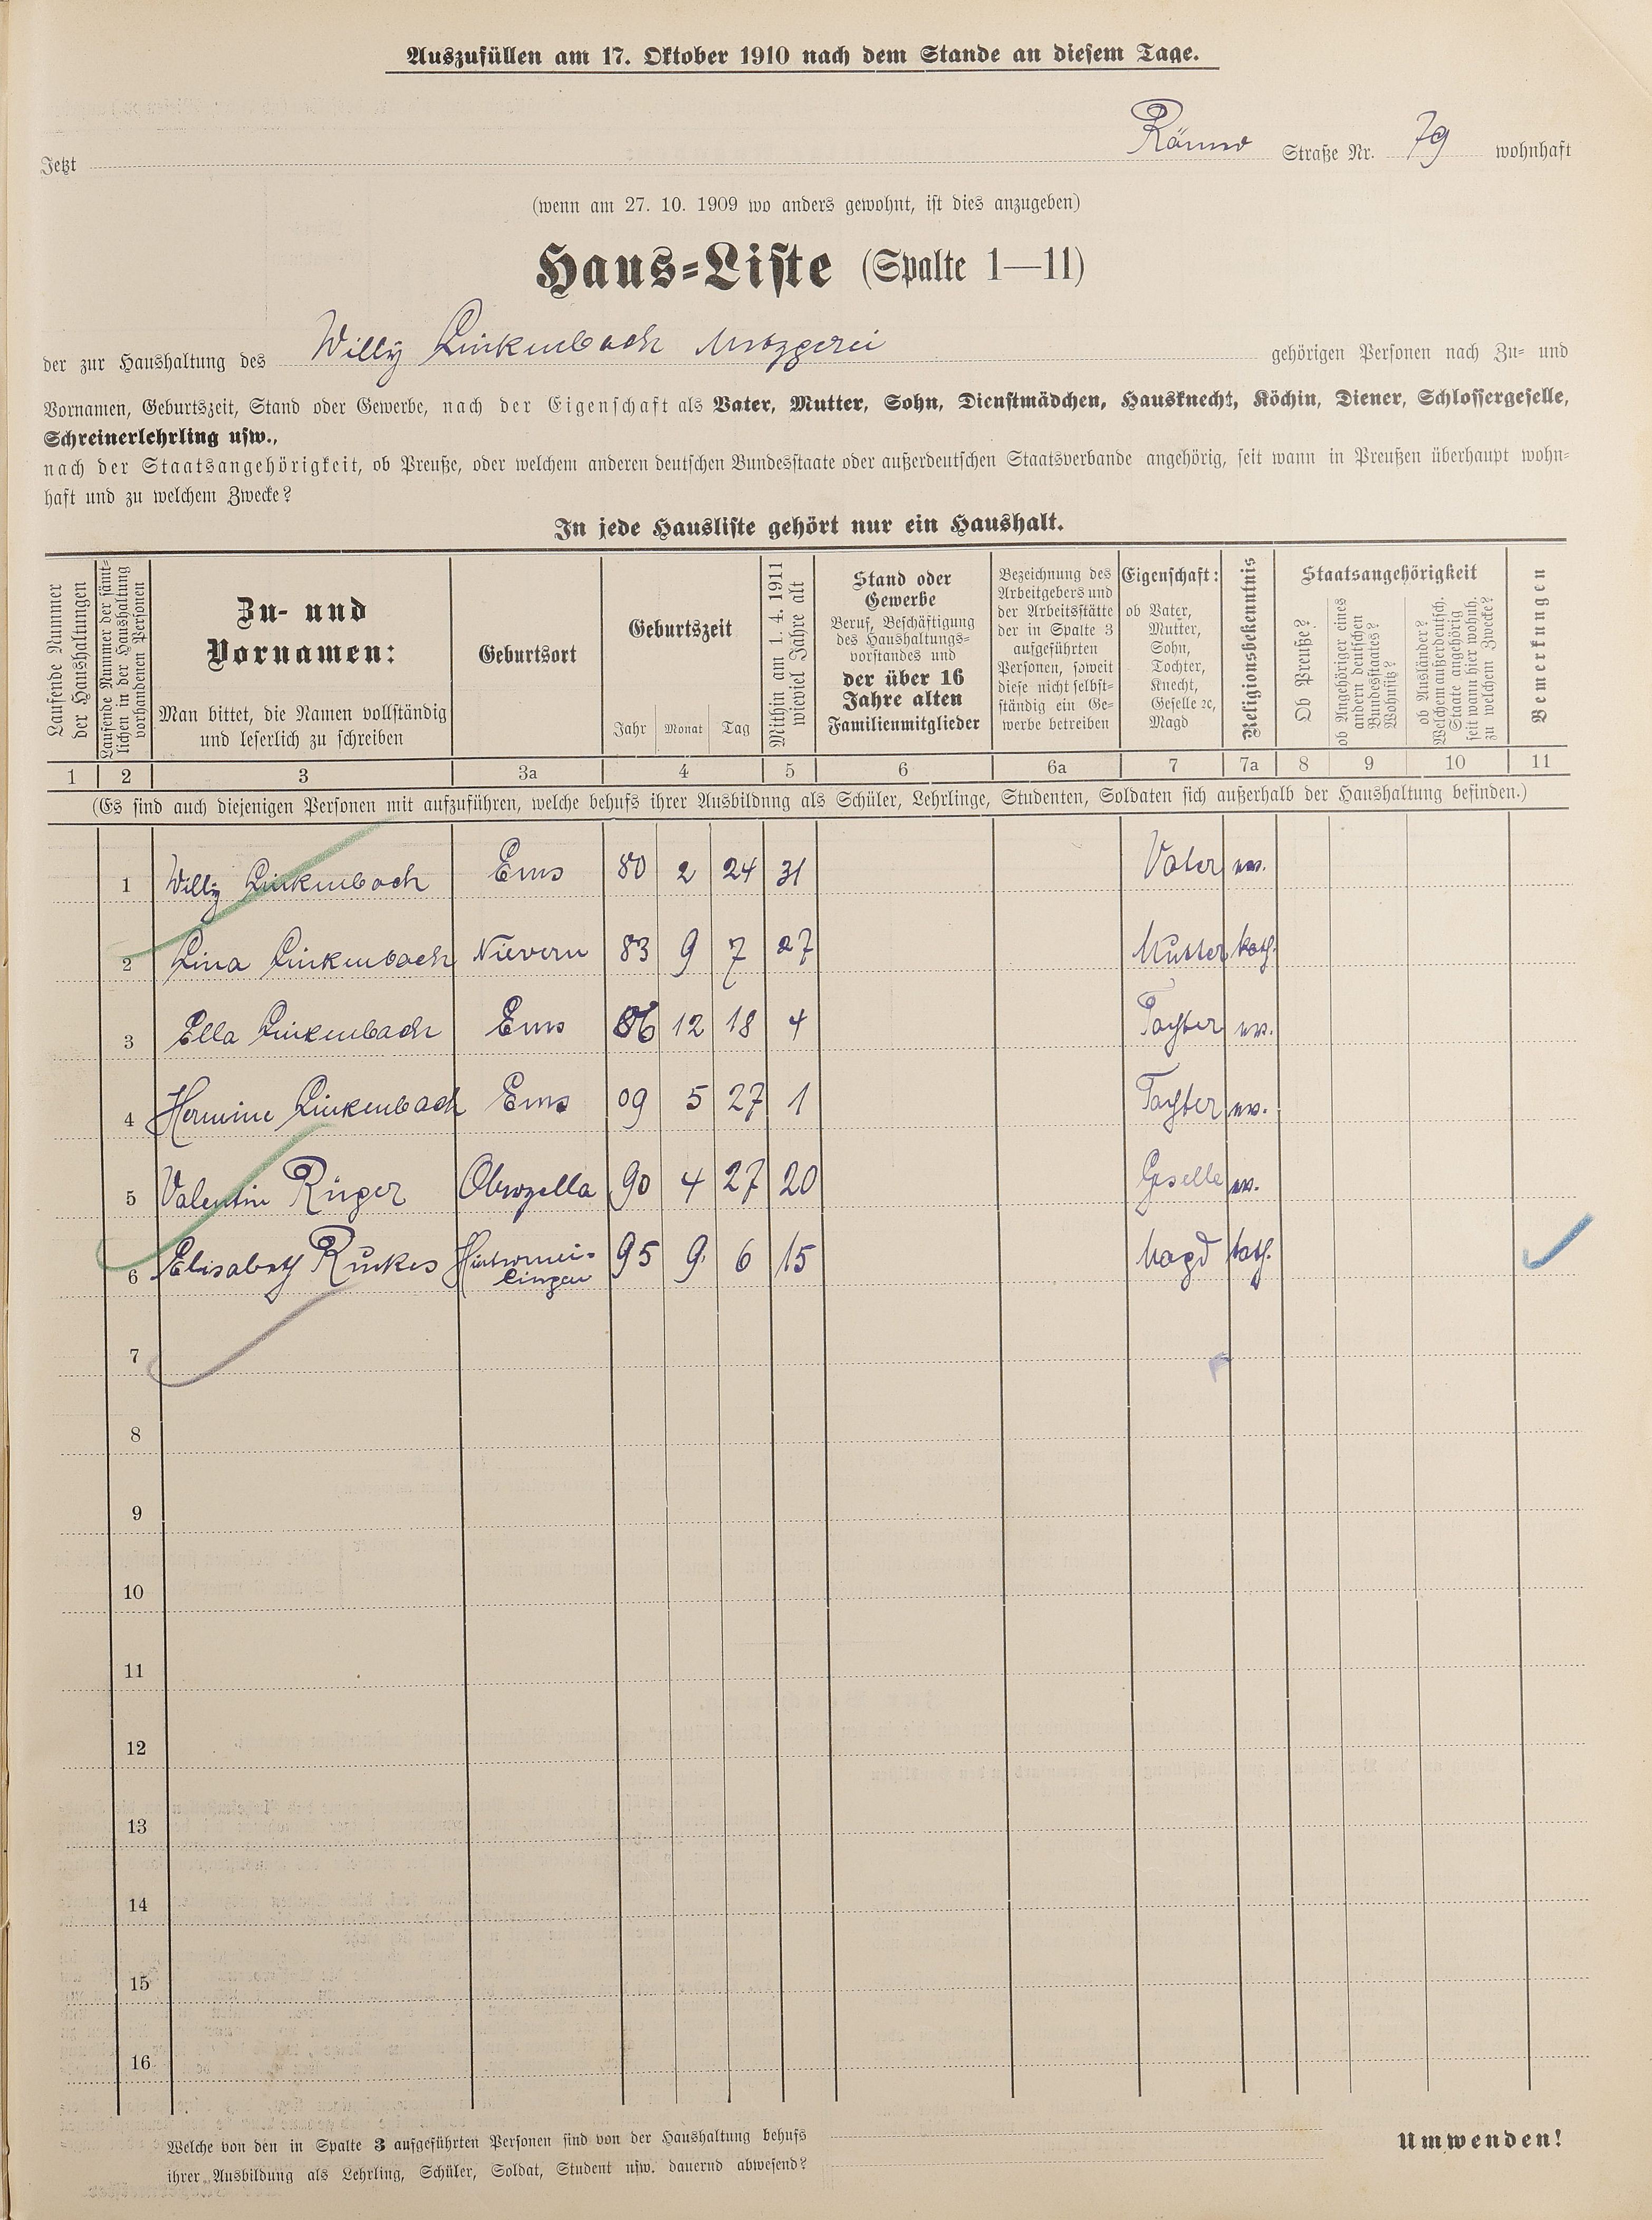 Auszufüllen am 17. Oktober 1910 nach dem Stande an diesem Tage.
Jetzt Römer Straße Nr. 79 wohnhaft
(wenn am 27. 10. 1909 wo anders gewohnt, ist dies anzugeben)
Haus=Liste (Spalte 1—11)
der zur Haushaltung des Willy Linkenbach Metzgerei gehörigen Personen nach Zu= und
Vornamen, Geburtszeit, Stand oder Gewerbe, nach der Eigenschaft als Vater, Mutter, Sohn, Dienstmädchen, Hausknecht, Köchin, Diener, Schlossergeselle,
Schreinerlehrling usw.,
nach der Staatsangehörigkeit, ob Preuße, oder welchem anderen deutschen Bundesstaate oder außerdeutschen Staatsverbande angehörig, seit wann in Preußen überhaupt wohn=
haft und zu welchem Zwecke?
In jede Hausliste gehört nur ein Haushalt.
Laufende Nummer
der Haushaltungen
Laufende Nummer der sämt=
lichen in der Haushaltung
vorhandenen Personen
Zu- und
Vornamen:
Man bittet, die Namen vollständig
und leserlich zu schreiben
Geburtsort
Geburtszeit
Jahr Monat Tag
Mithin am 1. 4. 1911
wieviel Jahre alt
Stand oder
Gewerbe
Beruf, Beschäftigung
des Haushaltungs=
vorstandes und
der über 16
Jahre alten
Familienmitglieder
Bezeichnung des
Arbeitgebers und
der Arbeitsstätte
der in Spalte 3
aufgeführten
Personen, soweit
diese nicht selbst=
ständig ein Ge=
werbe betreiben
Eigenschaft:
ob Vater,
Mutter,
Sohn,
Tochter,
Knecht,
Geselle ꝛc,
Magd
Religionsbekenntnis
Staatsangehörigkeit
Ob Preuße?
ob Angehöriger eines
andern deutschen
Bundesstaates?
Wohnsitz?
ob Ausländer?
Welchem außerdeutsch.
Staate angehörig
seit wann hier wohnh.
zu welchem Zwecke?
Bemerkungen
1 2 3 3a 4 5 6 6a 7 7a 8 9 10 11
(Es sind auch diejenigen Personen mit aufzuführen, welche behufs ihrer Ausbildung als Schüler, Lehrlinge, Studenten, Soldaten sich außerhalb der Haushaltung befinden.)
1 Willy Linkenbach Ems 80 2 24 31 Vater ev.
2 Lina Linkenbach Nievern 83 9 7 27 Mutter kath.
3 Ella Linkenbach Ems 06 12 18 4 Tochter ev.
4 Hermine Linkenbach Ems 09 5 27 1 Tochter ev.
5 Valentin Rüger Oberzella 90 4 27 20 Geselle ev.
6 Elisabeth Runkes Hintermei=
lingen 95 9 6 15 Magd kath.
7
8
9
10
11
12
13
14
15
16
Welche von den in Spalte 3 aufgeführten Personen sind von der Haushaltung behufs
ihrer Ausbildung als Lehrling, Schüler, Soldat, Student usw. dauernd abwesend?
Umwenden!